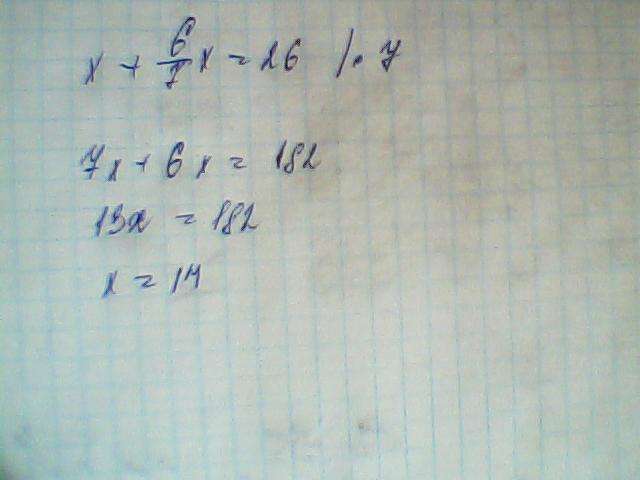 x + 6/7 x = 26 | · 7
7x + 6x = 182
13x = 182
x = 14